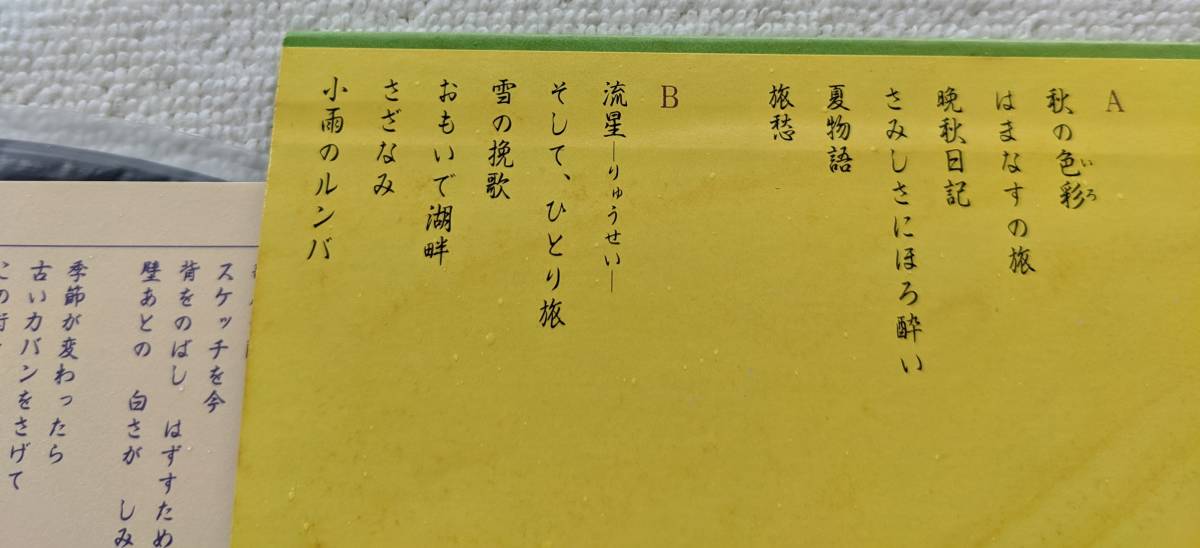 A
秋の色彩
いろ
はまなすの旅
晩秋日記
さみしさにほろ酔い
夏物語
旅愁
B
流星―りゅうせい―
そして、ひとり旅
雪の挽歌
おもいで湖畔
さざなみ
小雨のルンバ
スケッチを今
背をのばし はずすため
壁あとの 白さが しみ
季節が変わったら
古いカバンをさげて